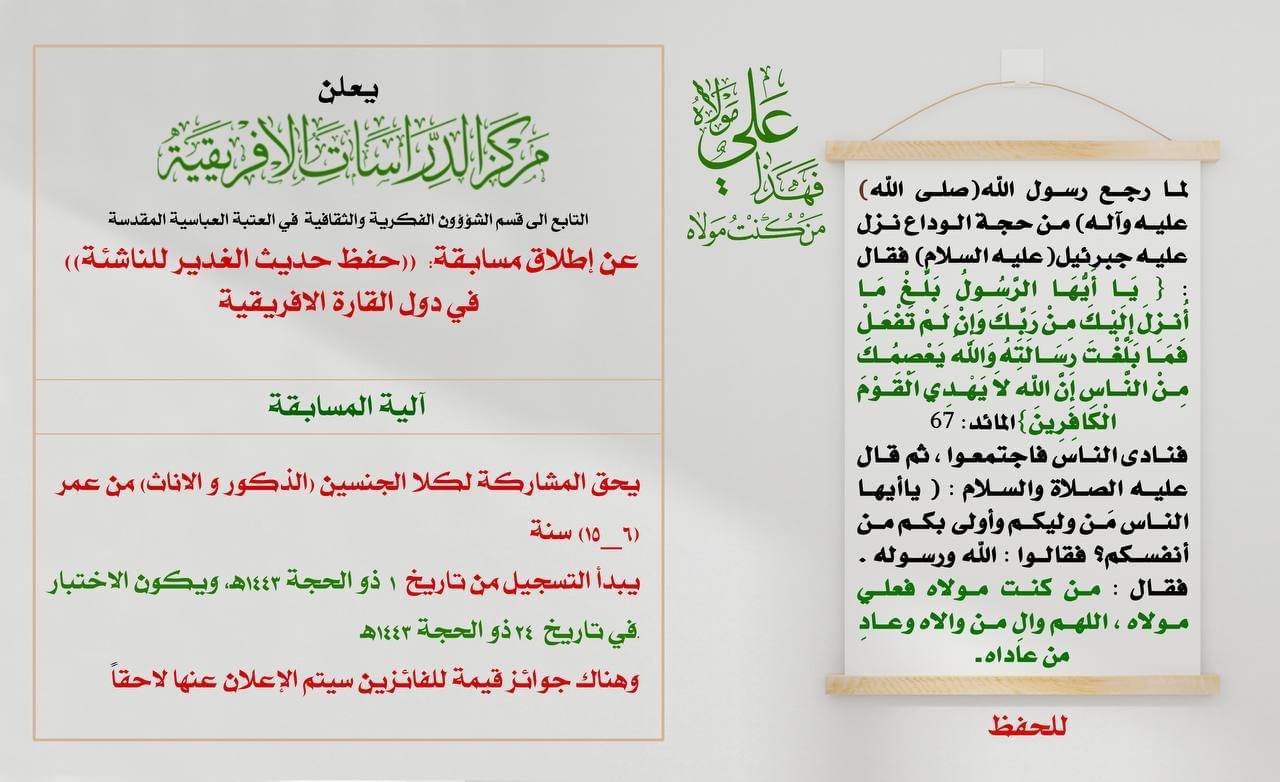 لما رجع رسول الله(صلى الله)
عليه وآله) من حجة الوداع نزل
عليه جبرئيل( عليه السلام) فقال
: { يَا أَيُّهَا الرَّسُولُ بَلِّغْ مَا
أُنزِلَ إِلَيْكَ مِنْ رَبِّكَ وَإِنْ لَمْ تَفْعَلْ
فَمَا بَلَّغْتَ رِسَالَتَهُ وَاللَّهُ يَعْصِمُكَ
مِنْ النَّاسِ إِنَّ اللَّه لاَ يَهْدِي الْقَوْمَ
الْكَافِرِينَ}المائد: 67
فنادى الناس فاجتمعوا ، ثم قال
عليه الصلاة والسلام : ( ياأيها
الناس مَن وليكم وأولى بكم من
أنفسكم؟ فقالوا : الله ورسوله .
فقال : من كنت مولاه فعلي
مولاه ، اللهم والِ من والاه وعادِ
من عاداه.
للحفظ
مَنْ كُنْتُ مَوْلاه
فَهَذَا
عَلِي مَوْلَاهُ
يعلن
مَركَز الدِّرَاسَاتِ الافْرِيقِيَّةِ
التابع الى قسم الشؤوون الفكرية والثقافية في العتبة العباسية المقدسة
عن إطلاق مسابقة: ((حفظ حديث الغدير للناشئة))
في دول القارة الافريقية
آلية المسابقة
يحق المشاركة لكلا الجنسين (الذكور و الاناث) من عمر
(٦__١٥) سنة
يبدأ التسجيل من تاريخ ١ ذو الحجة ١٤٤٣هـ، ويكون الاختبار
في تاريخ ٢٤ ذو الحجة ١٤٤٣هـ.
وهناك جوائز قيمة للفائزين سيتم الإعلان عنها لاحقاً